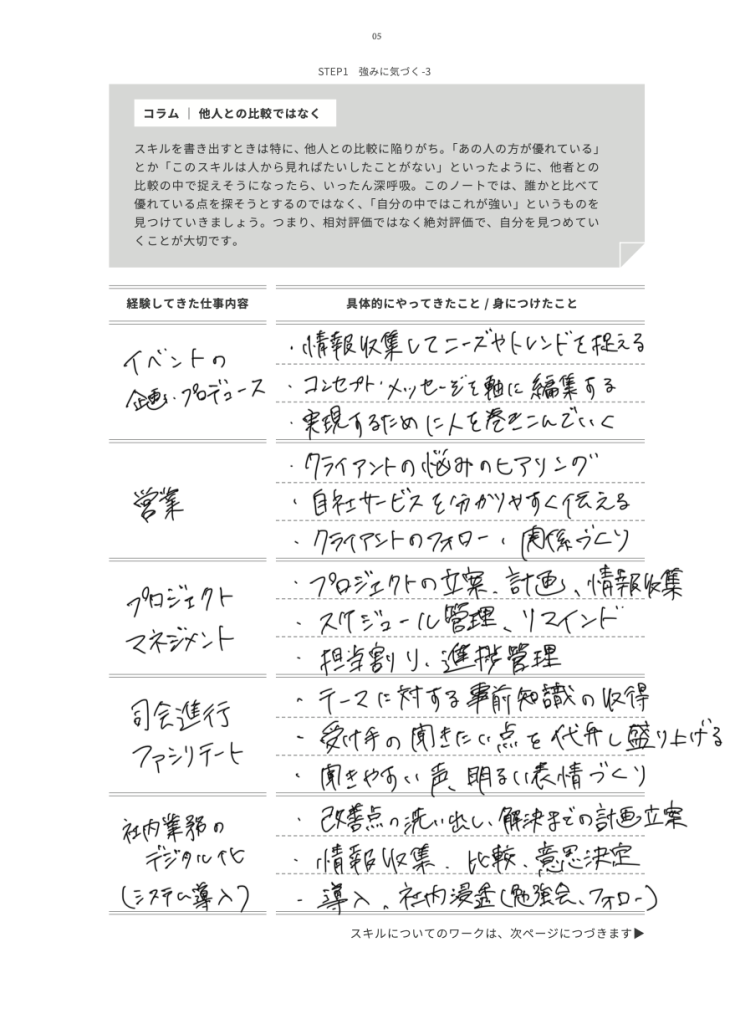 05
STEP1 強みに気づく-3
コラム｜他人との比較ではなく
スキルを書き出すときは特に、他人との比較に陥りがち。「あの人の方が優れている」
とか「このスキルは人から見ればたいしたことがない」といったように、他者との
比較の中で捉えそうになったら、いったん深呼吸。このノートでは、誰かと比べて
優れている点を探そうとするのではなく、「自分の中ではこれが強い」というものを
見つけていきましょう。つまり、相対評価ではなく絶対評価で、自分を見つめてい
くことが大切です。
経験してきた仕事内容
具体的にやってきたこと / 身につけたこと
イベントの
企画・プロデュース
・情報収集してニーズやトレンドを捉える
・コンセプト・メッセージを軸に編集する
・実現するために人を巻きこんでいく
営業
・クライアントの悩みのヒアリング
・自社サービスを分かりやすく伝える
・クライアントのフォロー、関係づくり
プロジェクト
マネジメント
・プロジェクトの立案、計画、情報収集
・スケジュール管理、リマインド
・担当割り、進捗管理
司会進行
ファシリテート
・テーマに対する事前知識の収得
・受け手の聞きたい点を代弁し盛り上げる
・聞きやすい声、明るい表情づくり
社内業務の
デジタル化
(システム導入)
・改善点の洗い出し、解決までの計画立案
・情報収集、比較、意思決定
・導入、社内浸透(勉強会、フォロー)
スキルについてのワークは、次ページにつづきます▶